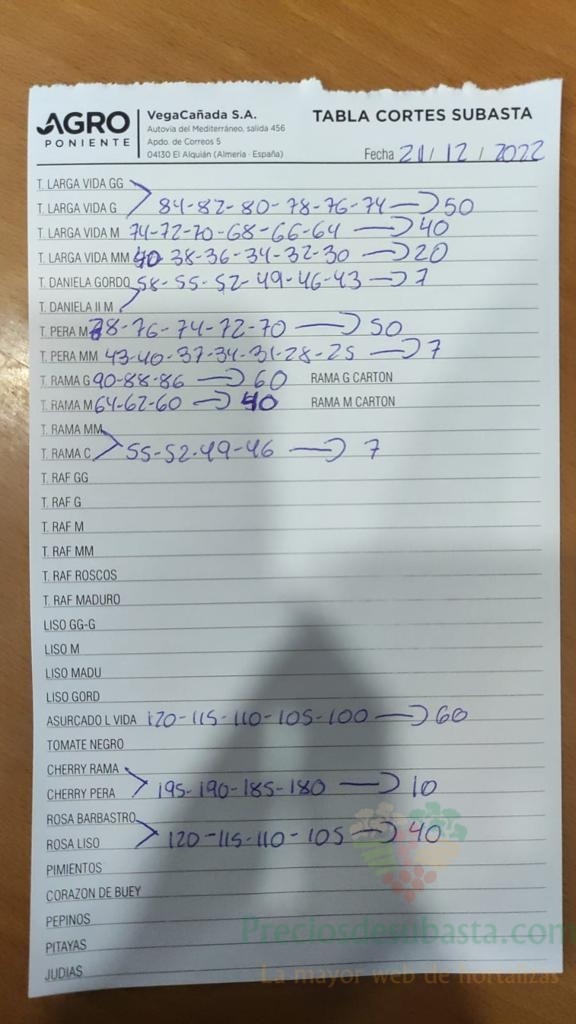 AGRO PONIENTE
VegaCañada S.A.
Autovía del Mediterráneo, salida 456
Apdo. de Correos 5
04130 El Alquián (Almería · España)
TABLA CORTES SUBASTA
Fecha 21 / 12 / 2022
T. LARGA VIDA GG
T. LARGA VIDA G 84-82-80-78-76-74 → 50
T. LARGA VIDA M 74-72-70-68-66-64 → 40
T. LARGA VIDA MM 40-38-36-34-32-30 → 20
T. DANIELA GORDO 58-55-52-49-46-43 → 7
T. DANIELA II M
T. PERA M 78-76-74-72-70 → 50
T. PERA MM 43-40-37-34-31-28-25 → 7
T. RAMA G 90-88-86 → 60 RAMA G CARTON
T. RAMA M 64-62-60 → 40 RAMA M CARTON
T. RAMA MM
T. RAMA C 55-52-49-46 → 7
T. RAF GG
T. RAF G
T. RAF M
T. RAF MM
T. RAF ROSCOS
T. RAF MADURO
LISO GG-G
LISO M
LISO MADU
LISO GORD
ASURCADO L VIDA 120-115-110-105-100 → 60
TOMATE NEGRO
CHERRY RAMA
CHERRY PERA 195-190-185-180 → 10
ROSA BARBASTRO
ROSA LISO 120-115-110-105 → 40
PIMIENTOS
CORAZON DE BUEY
PEPINOS
PITAYAS
JUDIAS
Preciosdesubasta.com
La mayor web de hortalizas